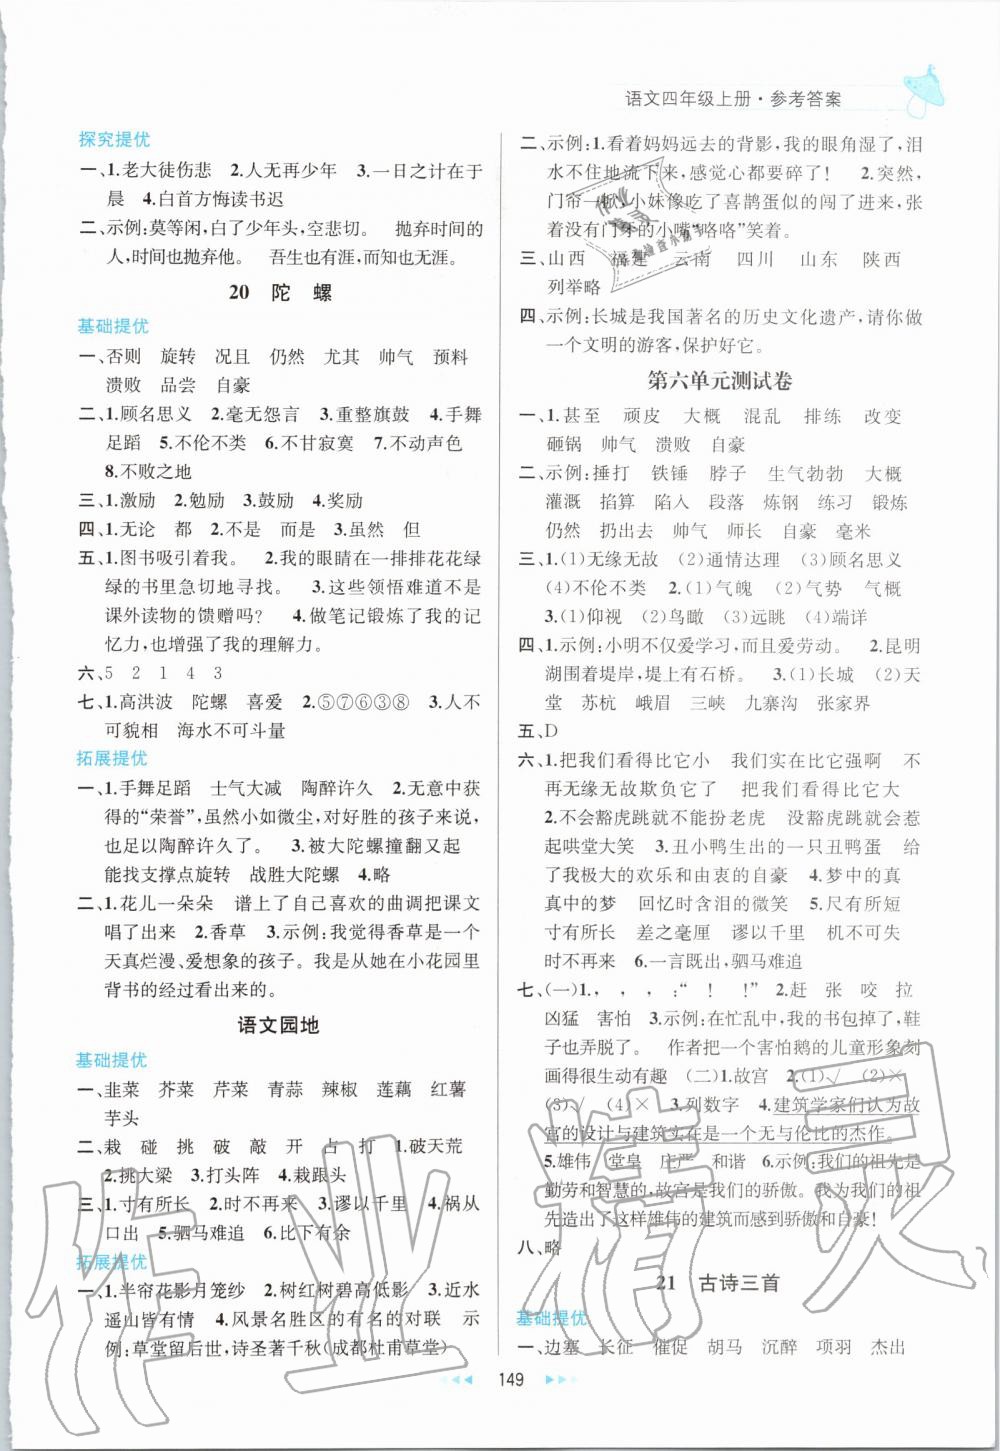 语文四年级上册·参考答案
探究提优
一、1.老大徒伤悲 2.人无再少年 3.一日之计在于
晨 4.白首方悔读书迟
二、示例:莫等闲,白了少年头,空悲切。 抛弃时间的
人,时间也抛弃他。 吾生也有涯,而知也无涯。
20 陀 螺
基础提优
一、否则 旋转 况且 仍然 尤其 帅气 预料
溃败 品尝 自豪
二、1.顾名思义 2.毫无怨言 3.重整旗鼓 4.手舞
足蹈 5.不伦不类 6.不甘寂寞 7.不动声色
8.不败之地
三、1.激励 2.勉励 3.鼓励 4.奖励
四、1.无论 都 2.不是 而是 3.虽然 但
五、1.图书吸引着我。 2.我的眼睛在一排排花花绿
绿的书里急切地寻找。 3.这些领悟难道不是
课外读物的馈赠吗? 4.做笔记锻炼了我的记
忆力,也增强了我的理解力。
六、5 2 1 4 3
七、1.高洪波 陀螺 喜爱 2.⑤⑦⑥③⑧ 3.人不
可貌相 海水不可斗量
拓展提优
一、1.手舞足蹈 士气大减 陶醉许久 2.无意中获
得的“荣誉”,虽然小如微尘,对好胜的孩子来说,
也足以陶醉许久了。 3.被大陀螺撞翻又起
能找支撑点旋转 战胜大陀螺 4.略
二、1.花儿一朵朵 谱上了自己喜欢的曲调把课文
唱了出来 2.香草 3.示例:我觉得香草是一个
天真烂漫、爱想象的孩子。我是从她在小花园里
背书的经过看出来的。
语文园地
基础提优
一、韭菜 芥菜 芹菜 青蒜 辣椒 莲藕 红薯
芋头
二、栽 碰 挑 破 敲 开 占 打 1.破天荒
2.挑大梁 3.打头阵 4.栽跟头
三、1.寸有所长 2.时不再来 3.谬以千里 4.祸从
口出 5.驷马难追 6.比下有余
拓展提优
一、1.半帘花影月笼纱 2.树红树碧高低影 3.近水
遥山皆有情 4.风景名胜区的有名的对联 示
例:草堂留后世,诗圣著千秋(成都杜甫草堂)
二、示例:1.看着妈妈远去的背影,我的眼角湿了,泪
水不住地流下来,感觉心都要碎了! 2.突然,
门帘一掀,小妹像吃了喜鹊蛋似的闯了进来,张
着没有门牙的小嘴“咯咯”笑着。
三、山西 福建 云南 四川 山东 陕西
列举略
四、示例:长城是我国著名的历史文化遗产,请你做
一个文明的游客,保护好它。
第六单元测试卷
一、1.甚至 顽皮 大概 混乱 排练 改变
砸锅 帅气 溃败 自豪
二、示例:捶打 铁锤 脖子 生气勃勃 大概
灌溉 掐算 陷入 段落 炼钢 练习 锻炼
仍然 扔出去 帅气 师长 自豪 毫米
三、1.(1)无缘无故 (2)通情达理 (3)顾名思义
(4)不伦不类 2.(1)气魄 (2)气势 气概
3.(1)仰视 (2)鸟瞰 (3)远眺 (4)端详
四、1.示例:小明不仅爱学习,而且爱劳动。 2.昆明
湖围着堤岸,堤上有石桥。 3.(1)长城 (2)天
堂 苏杭 峨眉 三峡 九寨沟 张家界
五、D
六、1.把我们看成比它小 我们实在比它强啊 不
再无缘无故欺负它了 把我们看成比它大
2.不会豁虎跳就不能扮老虎 没豁虎跳就会惹
起哄堂大笑 3.丑小鸭生出的一只丑鸭蛋 给
我极大的欢乐和由衷的自豪 4.梦中的真
真中的梦 回忆时含泪的微笑 5.尺有所短
寸有所长 差之毫厘 谬以千里 机不可失
时不再来 6.一言既出,驷马难追
七、(一)1., , ,:“ ! !” 2.赶 张 咬 拉
凶猛 害怕 3.示例:在忙乱中,我的书包掉了,鞋
子也弄脱了。 作者把一个害怕鹅的儿童形象刻
画得很生动有趣 (二)1.故宫 2.(1)√ (2)×
(3)√ (4)× 3.列数字 4.建筑学家们认为故
宫的设计与建筑实在是一个无与伦比的杰作。
5.雄伟 堂皇 庄严 和谐 6.示例:我们的祖先是
勤劳和智慧的,故宫是我们的骄傲。我为我们的祖
先造出了这样雄伟的建筑而感到骄傲和自豪!
八、略
21 古诗三首
基础提优
一、边塞 长征 催促 胡马 沉醉 项羽 杰出
149
作业精灵